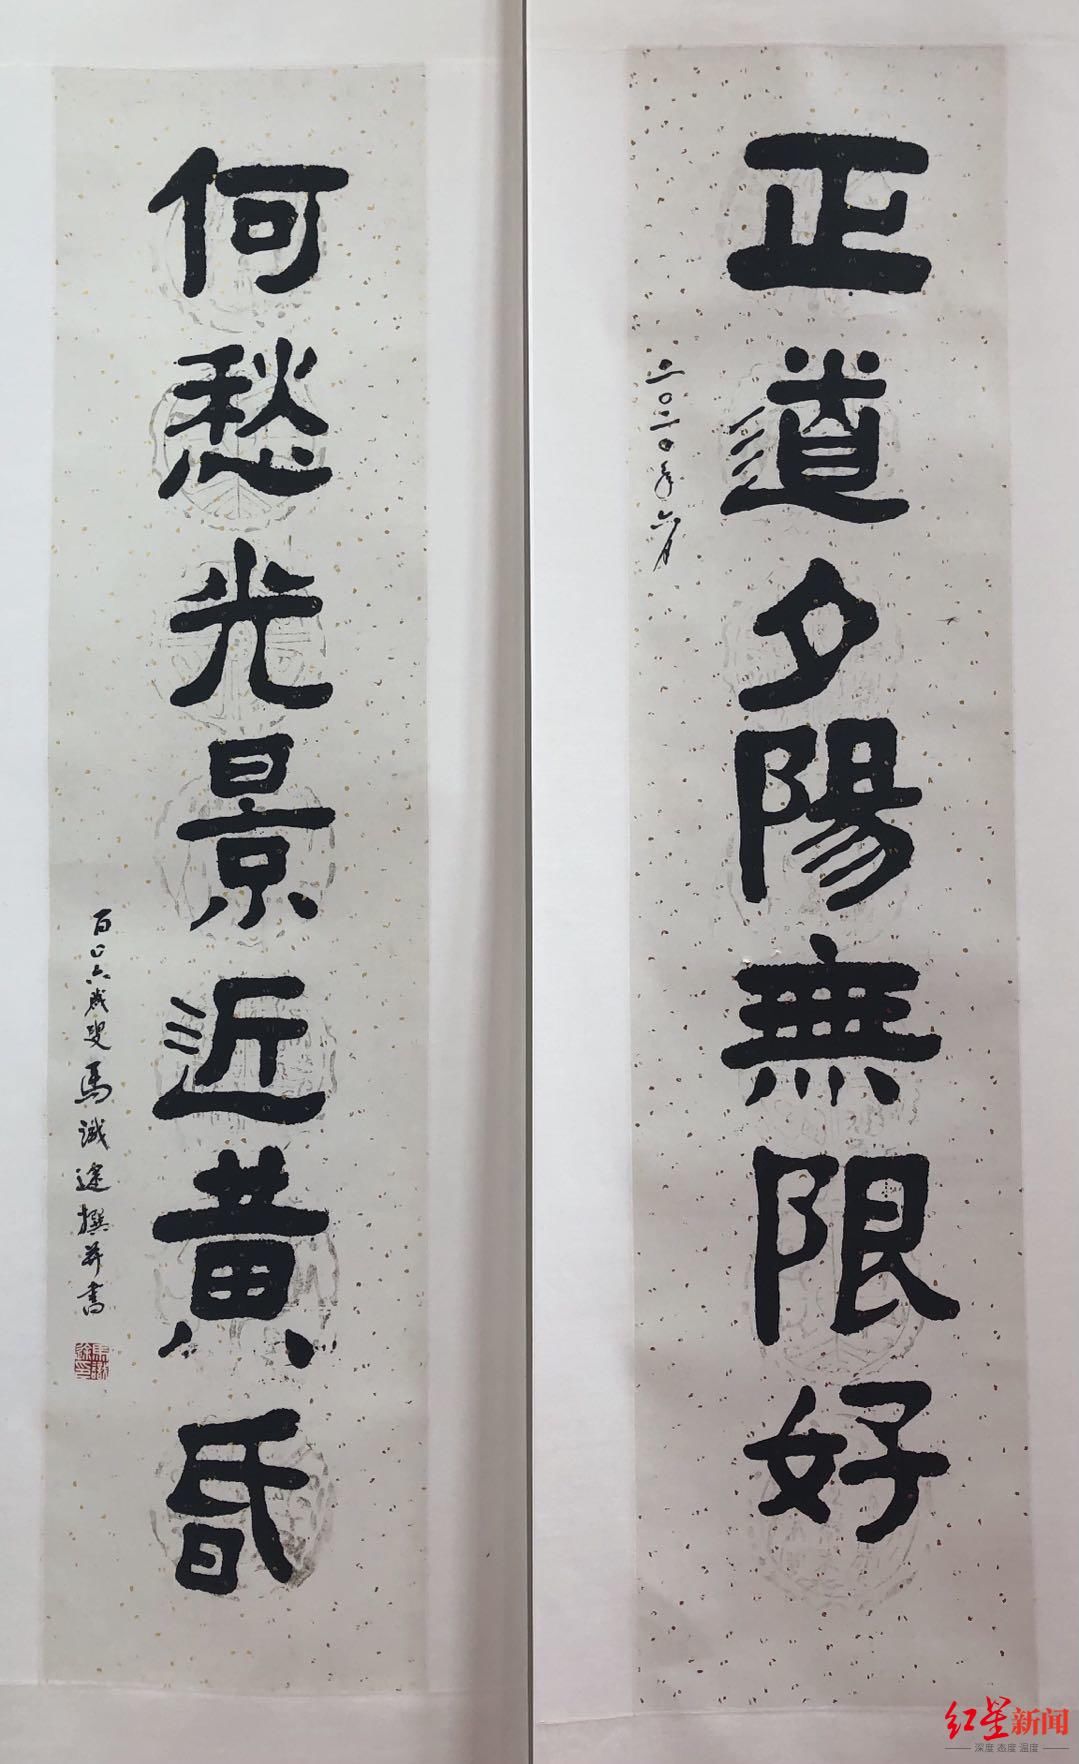 正道夕陽無限好
二〇二〇年六月
何愁光景近黄昏
百〇六歲叟馬識途撰并書
馬識途印
红星新闻
深度 态度 温度